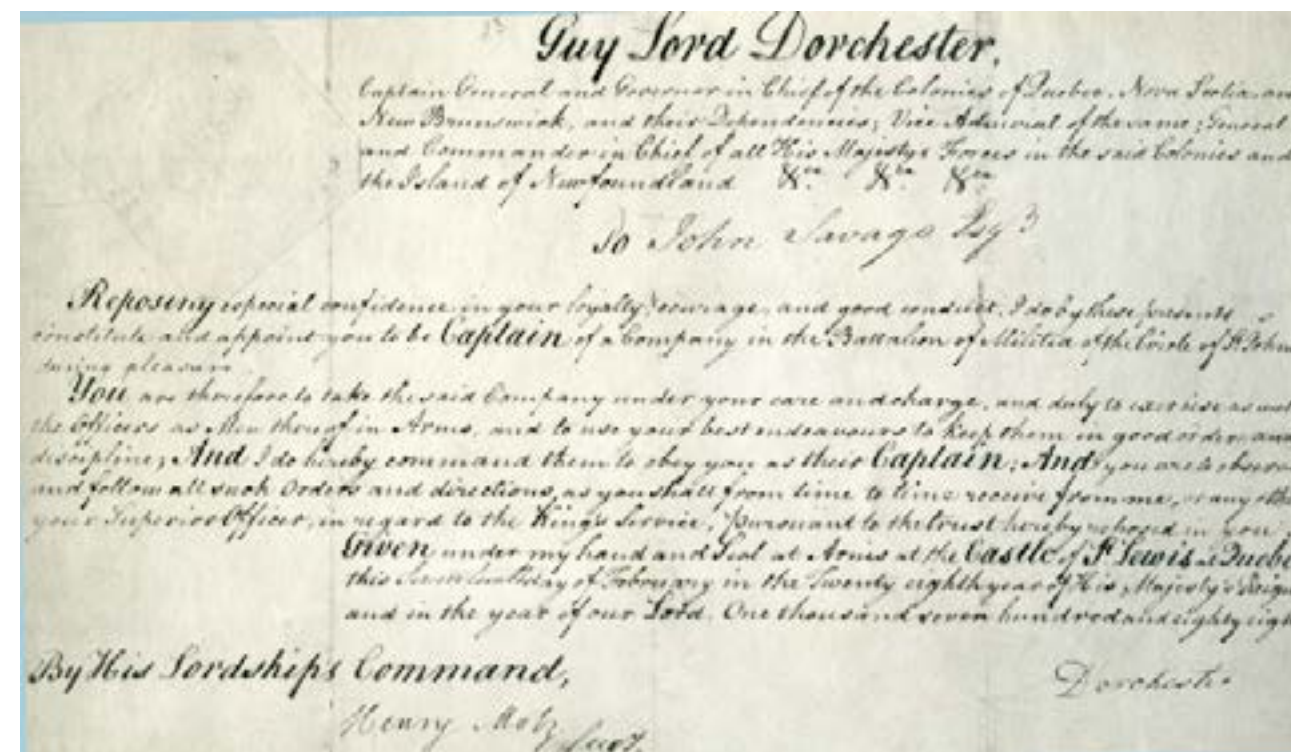 Guy Lord Dorchester,
Captain General and Governor in Chief of the Colonies of Quebec, Nova Scotia and
New Brunswick, and their Dependencies; Vice Admiral of the same; General
and Commander in Chief of all His Majestys Forces in the said Colonies and
the Island of Newfoundland &ca &ca &ca
To John Savage Esqr
Reposing especial confidence in your loyalty, courage, and good conduct, I do by these presents
constitute and appoint you to be Captain of a Company in the Battalion of Militia of the Circle of St Johns
during pleasure.
You are therefore to take the said Company under your care and charge, and duly to exercise as well
the Officers as Men thereof in Arms, and to use your best endeavours to keep them in good order and
discipline; And I do hereby command them to obey you as their Captain; And you are to observe
and follow all such Orders and directions, as you shall from time to time receive from me, or any other
your Superior Officer, in regard to the King's Service, pursuant to the trust hereby reposed in you;
Given under my hand and Seal at Arms at the Castle of St Lewis at Quebec
this day of February in the Twenty eighth year of His Majesty's Reign
and in the year of our Lord, One thousand seven hundred and eighty eight
By His Lordships Command,
Dorchester
Henry Motz
Secry.